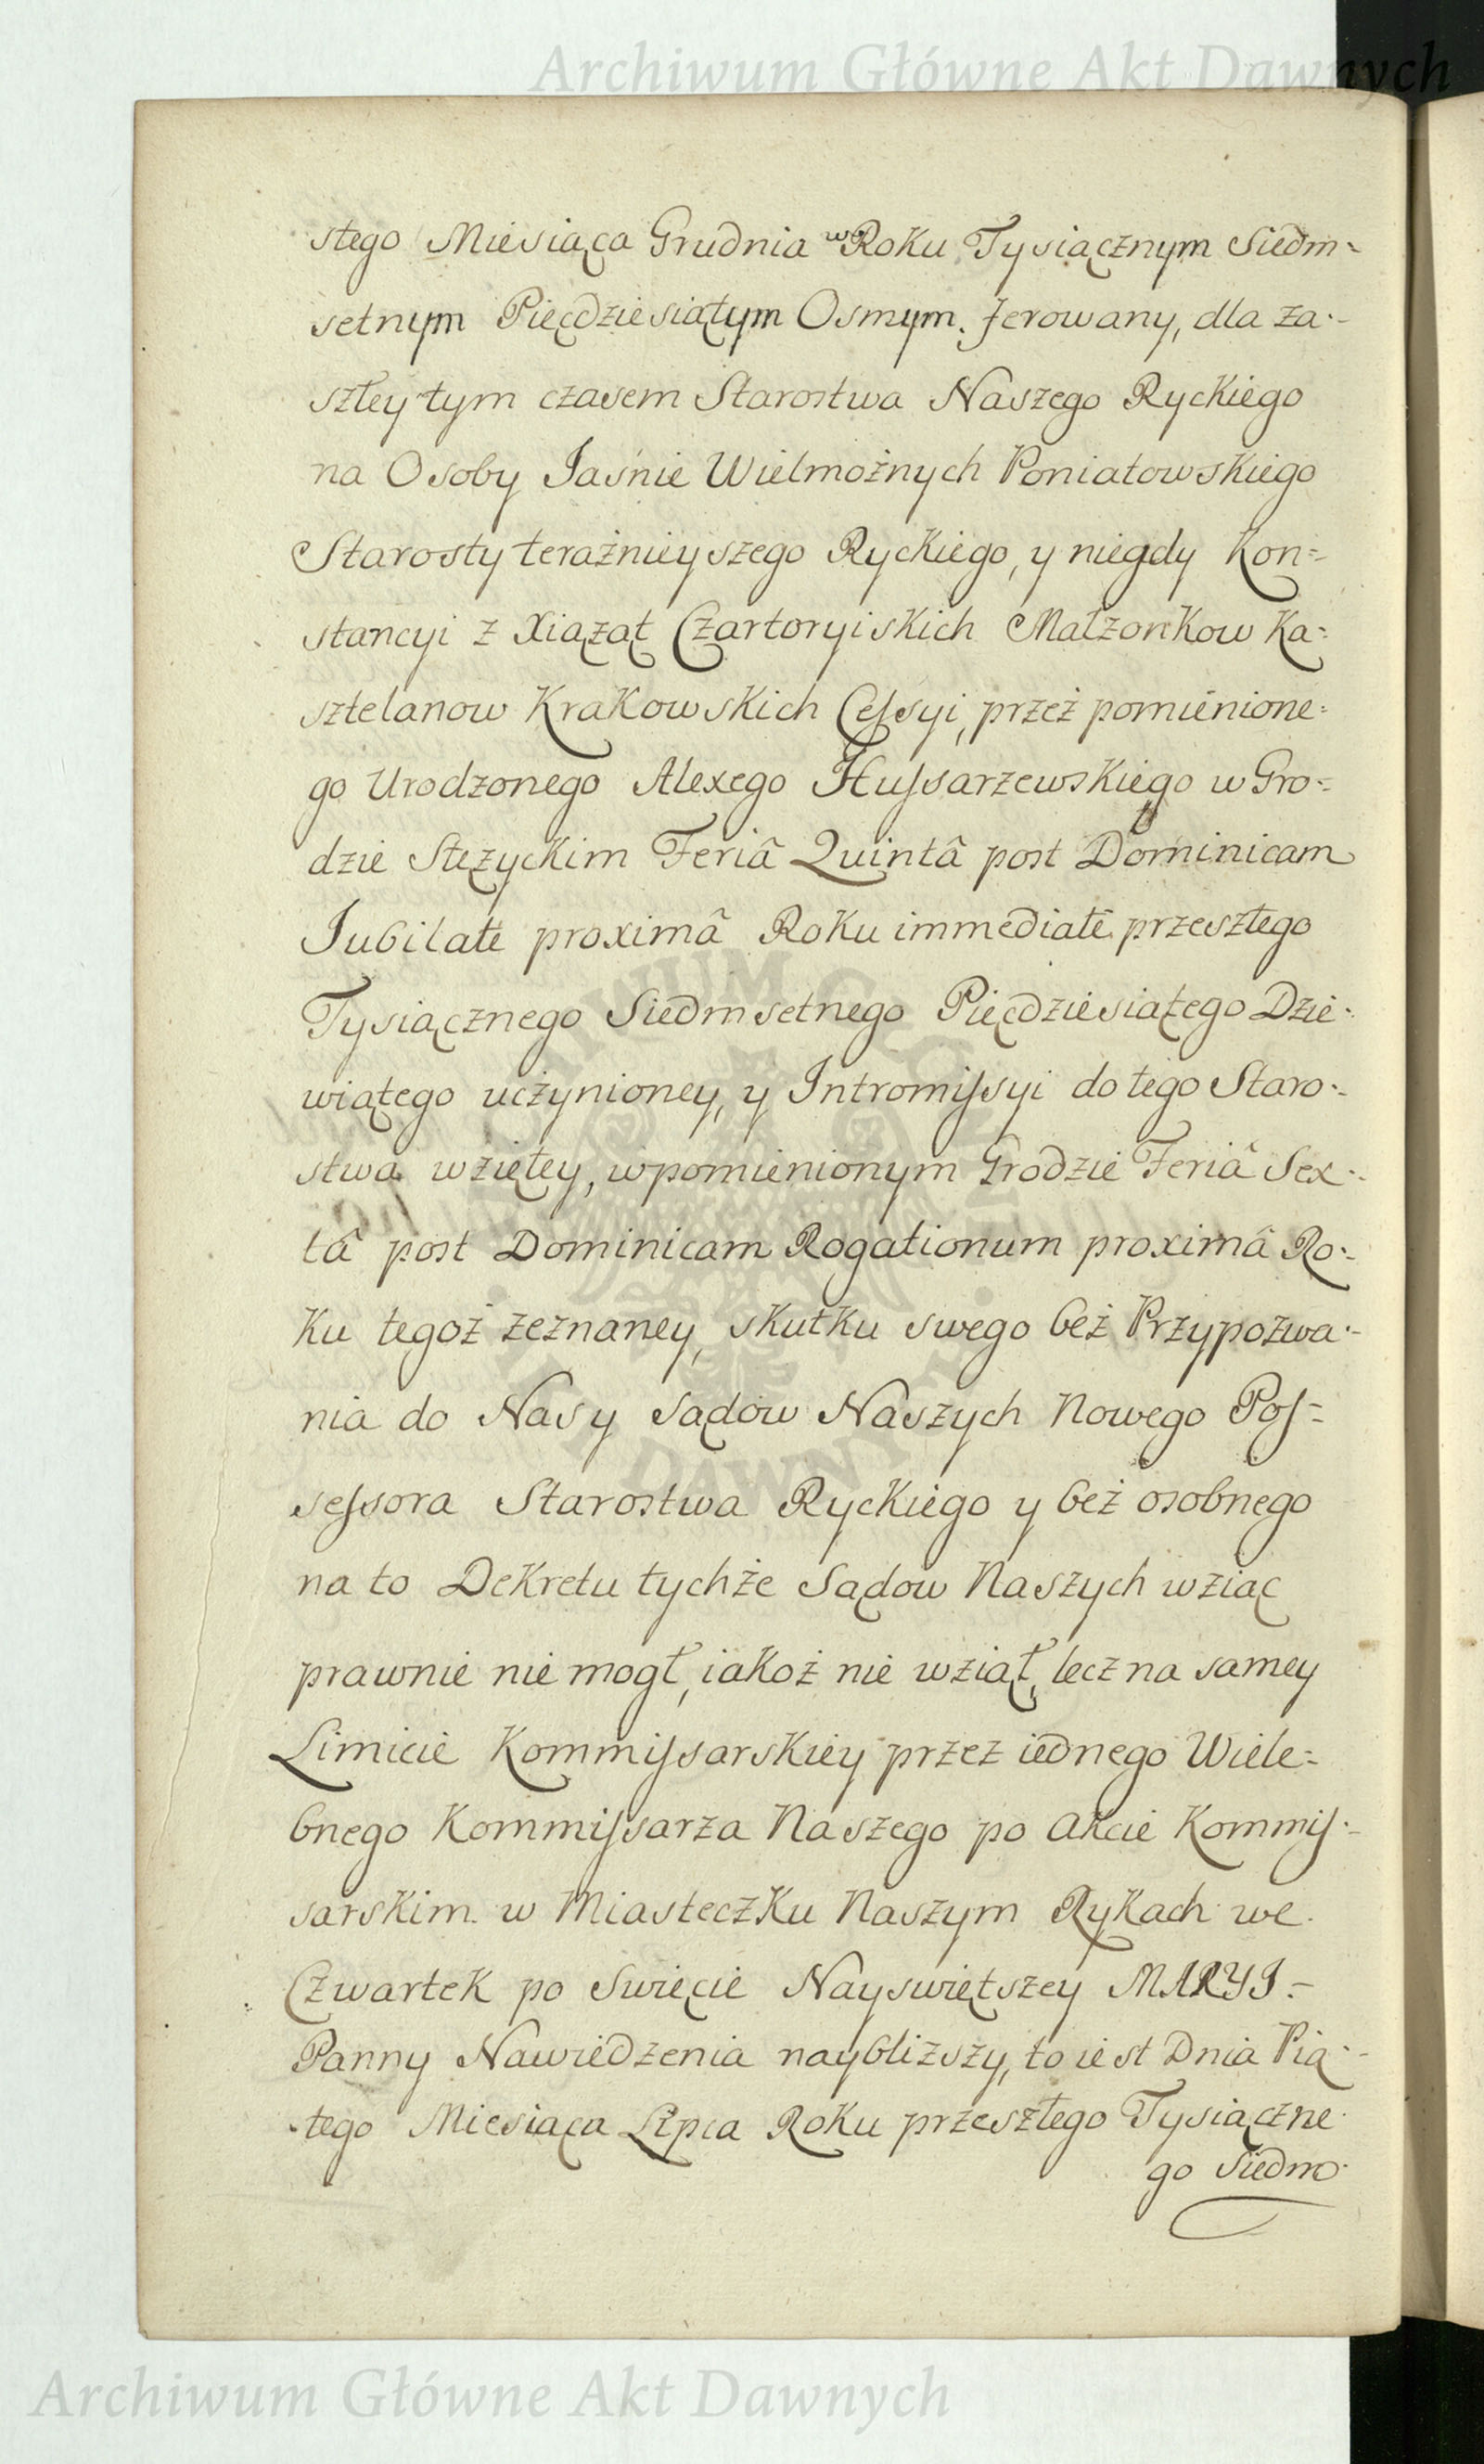 Archiwum Główne Akt Dawnych
stego Miesiąca Grudnia w Roku Tysiącznym Siedm=
setnym Pięćdziesiątym Osmym. ferowany, dla za=
szłey tym czasem Starostwa Naszego Ryckiego
na Osoby Jaśnie Wielmożnych Poniatowskiego
Starosty teraźnieyszego Ryckiego, y niegdy Kon=
stancyi z Xiążąt Czartoryiskich Małżonkow Ka=
sztelanow Krakowskich Cessyi, przez pomienione=
go Urodzonego Alexego Hussarzewskiego w Gro=
dzie Stężyckim Feriâ Quintâ post Dominicam
Jubilate proximâ Roku immediatè przeszłego
Tysiącznego Siedmsetnego Pięćdziesiątego Dzie=
wiątego uczynioney, y Intromissyi do tego Staro=
stwa wziętey, w pomienionym Grodzie Feriâ Sex=
tâ post Dominicam Rogationum proximâ Ro=
ku tegoż zeznaney, skutku swego beż Przypozwa=
nia do Nas y Sądow Naszych Nowego Pos=
sessora Starostwa Ryckiego y beż osobnego
na to Dekretu tychże Sądow Naszych wziąć
prawnie nie mogł, iakoż nie wziął, lecz na samey
Limicie Kommissarskiey przez iednego Wiele=
bnego Kommissarza Naszego po Akcie Kommis=
sarskim w Miasteczku Naszym Rykach we
Czwartek po Swięcie Nayswiętszey MARYI
Panny Nawiedzenia naybliższy, to iest Dnia Pią=
tego Miesiąca Lipca Roku przeszłego Tysiączne
go Siedm
Archiwum Główne Akt Dawnych